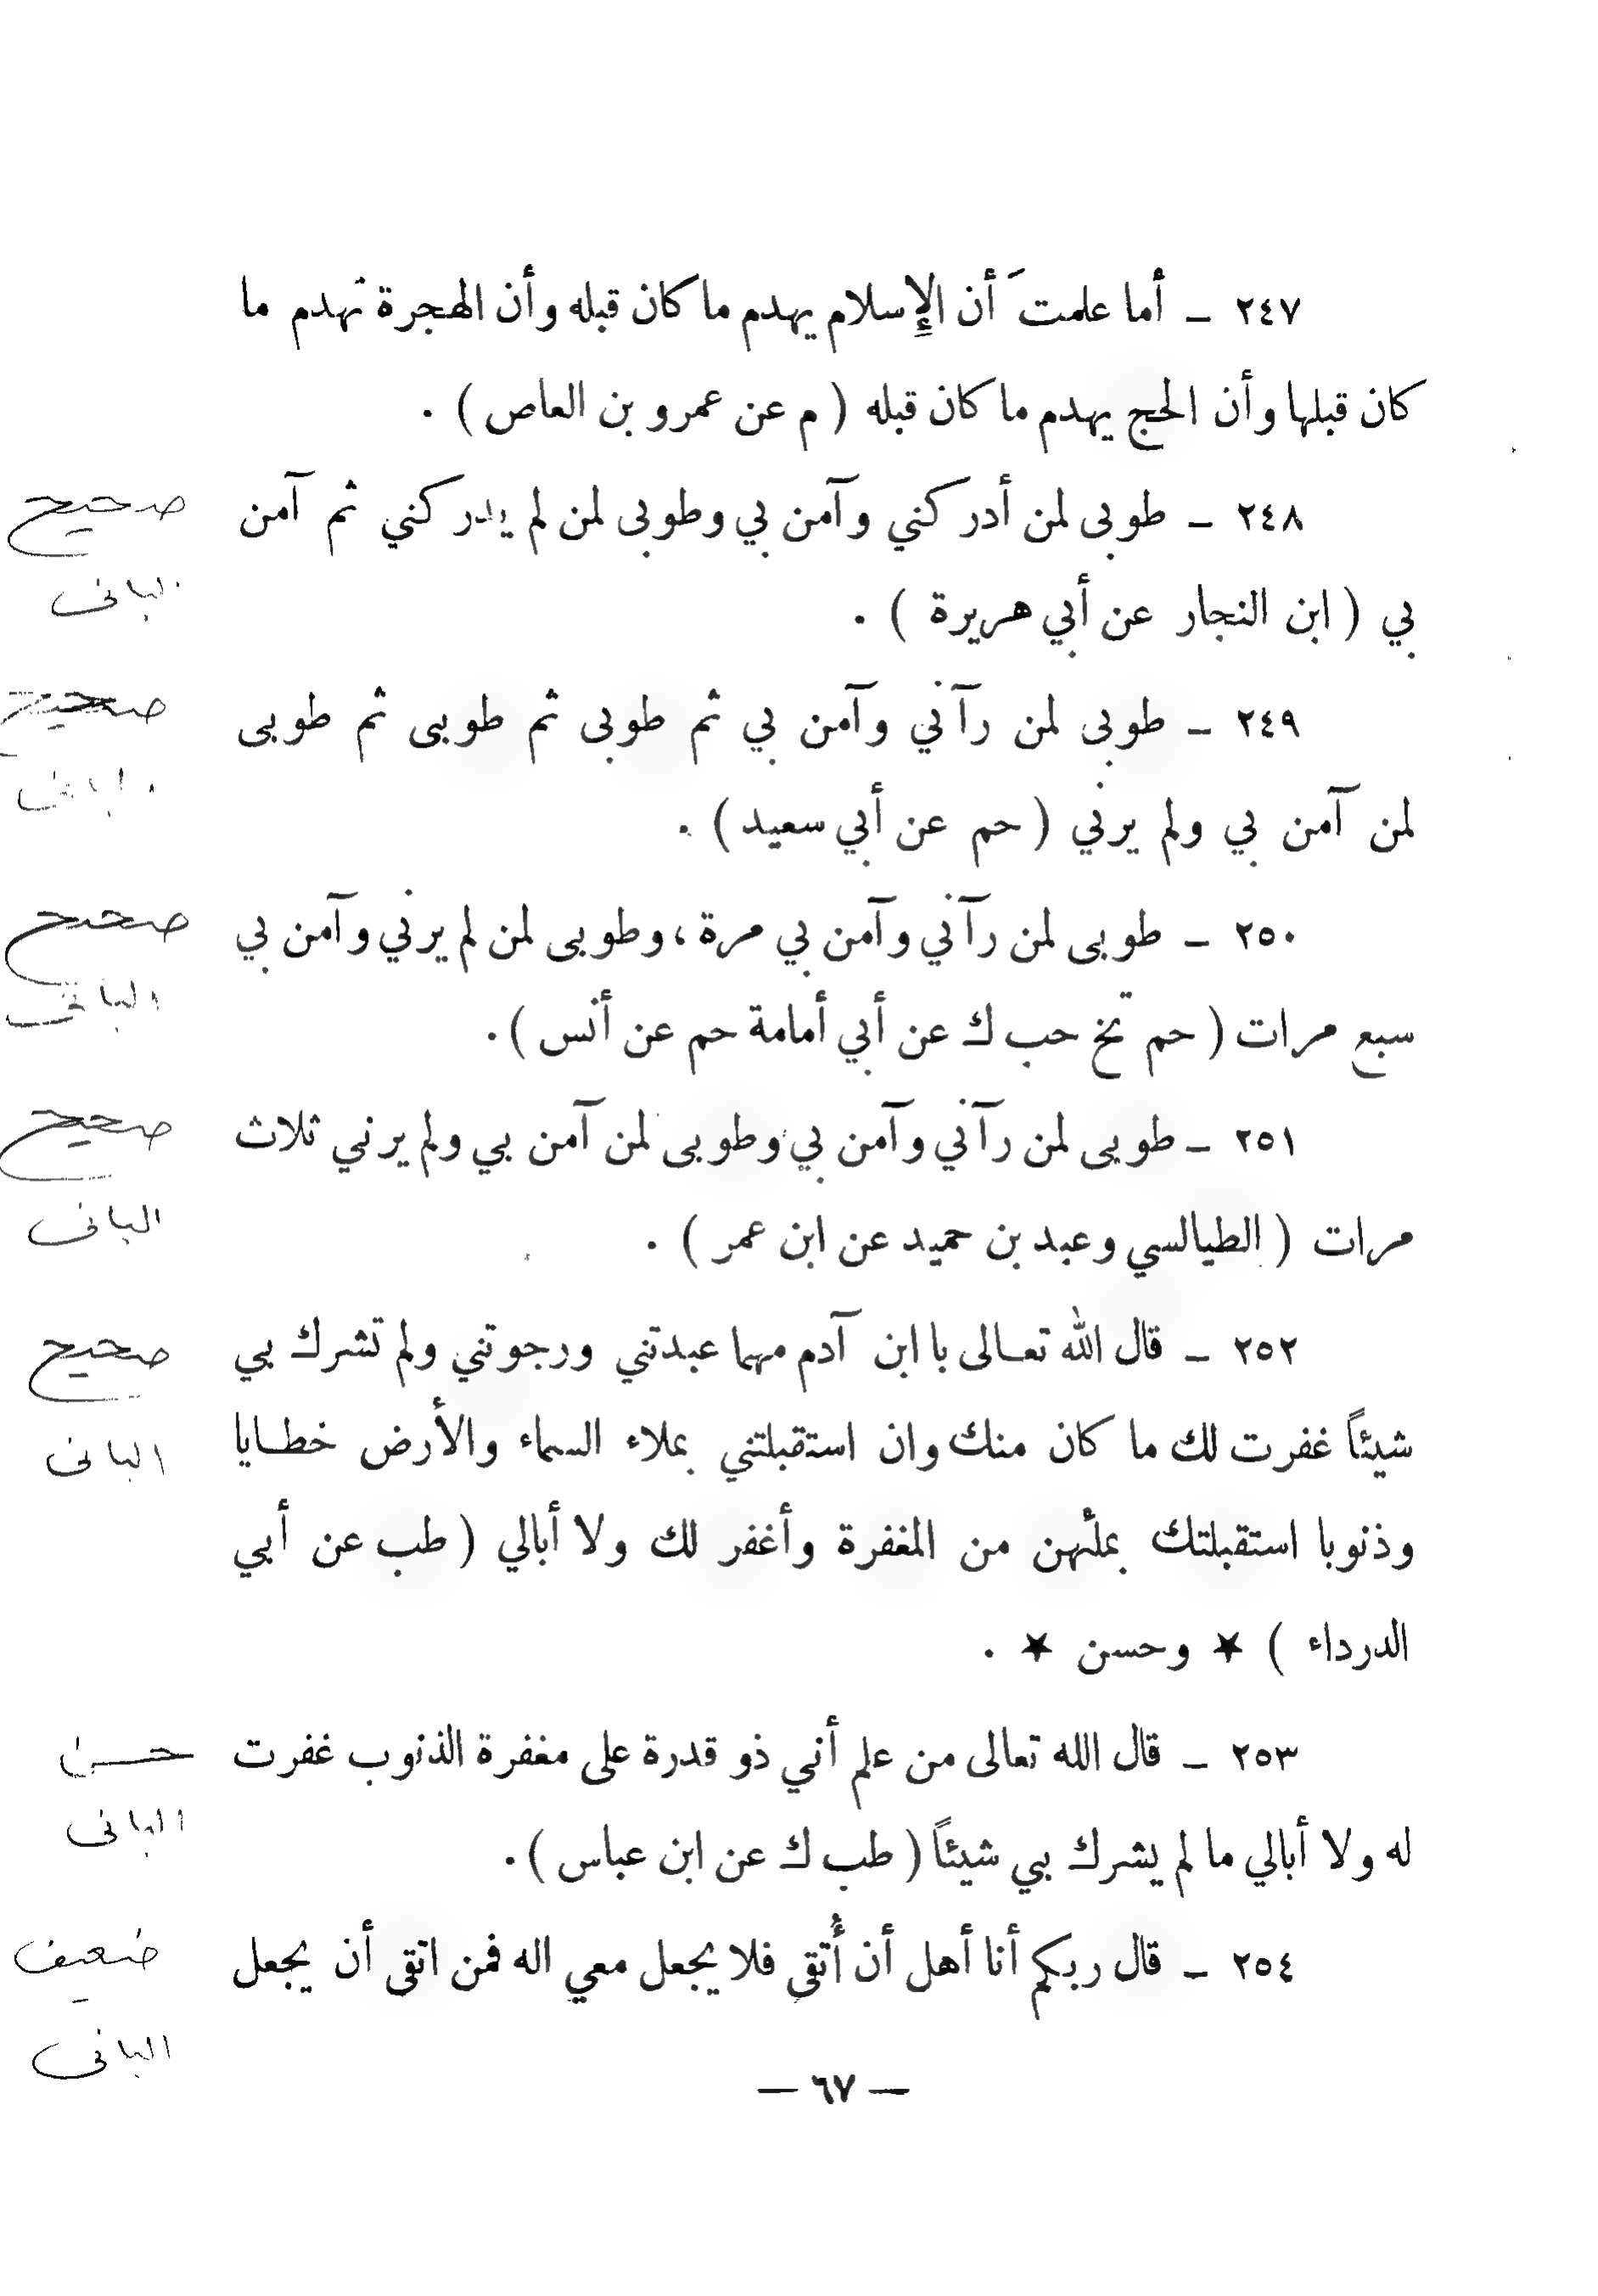 ٢٤٧ – أما علمتَ أن الإِسلام يهدم ما كان قبله وأن الهجرة تهدم ما
كان قبلها وأن الحج يهدم ما كان قبله ( م عن عمرو بن العاص ) .
٢٤٨ – طوبى لمن أدركني وآمن بي وطوبى لمن لم يدركني ثم آمن
صحيح
البانى
بي ( ابن النجار عن أبي هريرة ) .
٢٤٩ – طوبى لمن رآني وآمن بي ثم طوبى ثم طوبى ثم طوبى
صحيح
لمن آمن بي ولم يرني ( حم عن أبي سعيد ) .
٢٥٠ – طوبى لمن رآني وآمن بي مرة ، وطوبى لمن لم يرني وآمن بي
صحيح
البانى
سبع مرات ( حم تخ حب ك عن أبي أمامة حم عن أنس ) .
٢٥١ – طوبى لمن رآني وآمن بي وطوبى لمن آمن بي ولم يرني ثلاث
صحيح
البانى
مرات ( الطيالسي وعبد بن حميد عن ابن عمر ) .
٢٥٢ – قال الله تعالى با ابن آدم مهما عبدتني ورجوتني ولم تشرك بي
صحيح
البانى
شيئاً غفرت لك ما كان منك وان استقبلتني بملاء السماء والأرض خطايا
وذنوبا استقبلتك بملئهن من المغفرة وأغفر لك ولا أبالي ( طب عن أبي
الدرداء ) ★ وحسن ★ .
٢٥٣ – قال الله تعالى من علم أني ذو قدرة على مغفرة الذنوب غفرت
حسن
البانى
له ولا أبالي ما لم يشرك بي شيئاً ( طب ك عن ابن عباس ) .
٢٥٤ – قال ربكم أنا أهل أن أُتقى فلا يجعل معي اله فمن اتقى أن يجعل
ضعيف
البانى
— ٦٧ —